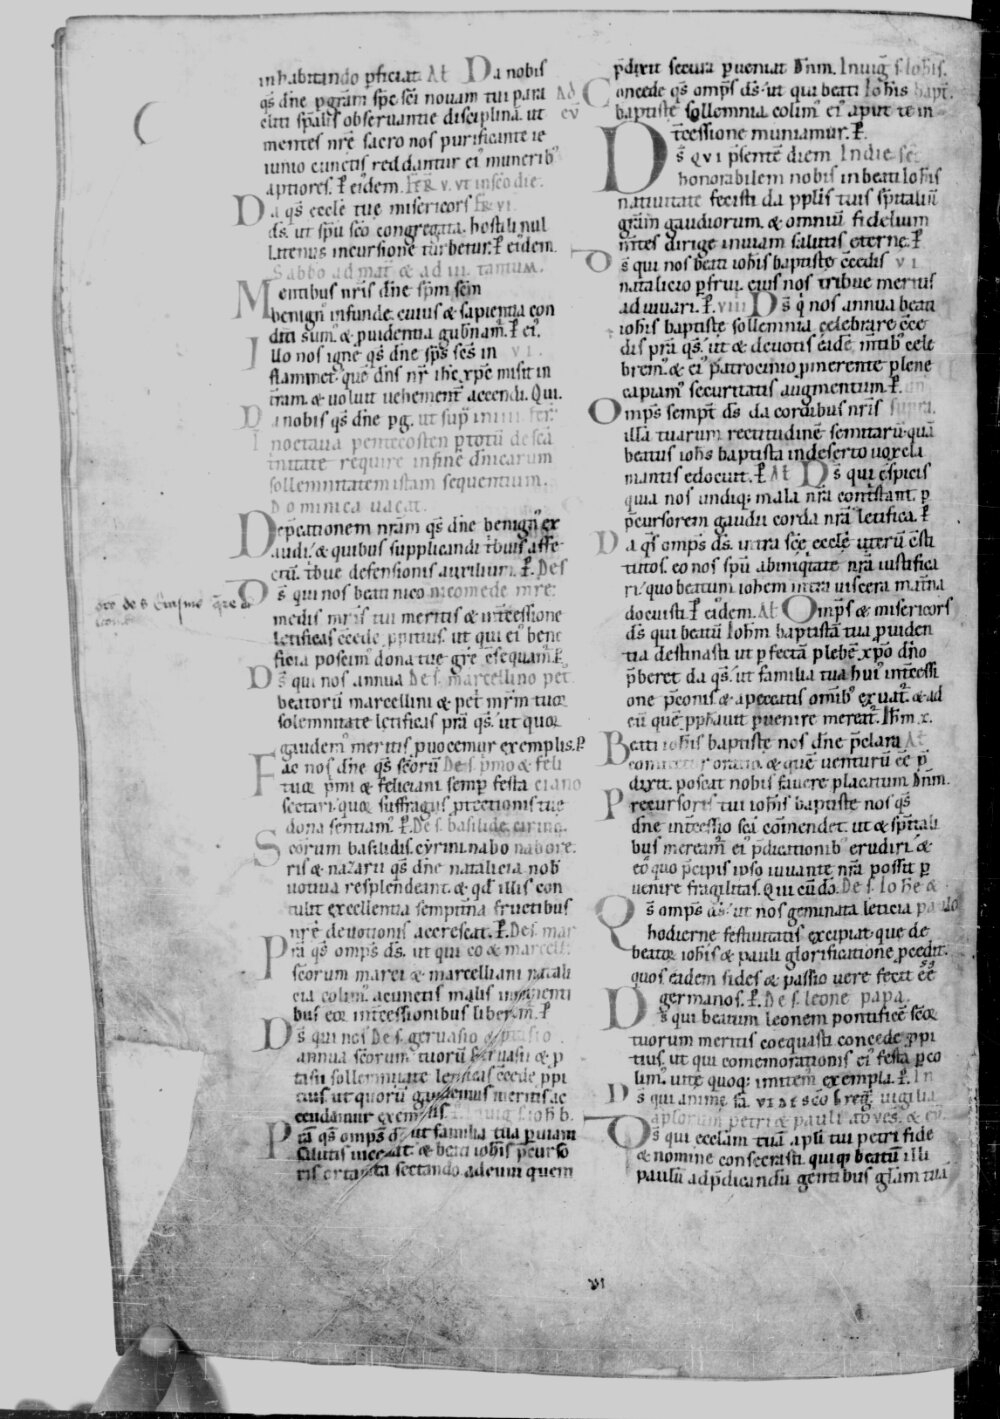 inhabitando ꝑficiat. At Da nobis
qs̄ dn̄e ꝑ grām spc̄ sc̄i nouam tui para
cliti spīalis obseruantie disciplinā. ut
mentes nr̄e sacro nos purificante ie
iunio cunctis reddantur ei᷒ munerib᷒
aptiores. ꝑ. eiusdem. Fer̄ v. vt in sc̄o die.
Da qs̄ eccle tue misericors Fr̄ vi.
ds̄. ut sp̄u sc̄o congregata. hostili nul
latenus incursione turbetur. ꝑ. eīdem.
Sabbo ad mat̄ & ad iii. tantum.
Mentibus nr̄is dn̄e spm̄ sc̄m
benign᷒ infunde. cuius & sapientia con
diti sum᷒ & ꝓuidentia gub̄nam᷒. ꝑ. ei᷒.
Illo nos igne qs̄ dn̄e sp̄s sc̄s in vi.
flammet. quē dn̄s nr̄ ih̄c xp̄c misit in
tr̄am. & uoluit uehement̄ accendi. Qui.
Da nobis qs̄ dn̄e ꝑ g. ut sup̄ in iiii. fer̄.
In octaua pentecosten ꝑ totū de sc̄a
trinitate require in fine dn̄icarum
sollemnitatem istam sequentium.
Dominica uacat.
Depcationem nr̄am qs̄ dn̄e benign᷒ ex
audi. & quibus supplicandi tribuis affe
ctū. tribue defensionis auxilium. ꝑ. De s.
Ds̄ qui nos beati nico nicomede mr̄e.
medis mr̄is tui meritis & int̄cessione
letificas. c̄cede ꝓpitius. ut qui ei᷒ bene
ficia poscim᷒ dona tue gr̄e c̄sequam᷒. ꝑ
Ds̄ qui nos annua De s. marcellino pet̄.
beatorū marcellini & pet̄ mr̄m tuoꝝ
solemnitate letificas. pr̄a qs̄. ut quoꝝ
gaudem᷒ meritis ꝓuocemur exemplis. ꝑ.
Fac nos dn̄e qs̄ sc̄orū De s. pͥmo & feli
tuoꝝ pͥmi & feliciani semꝑ festa ciano
sectari. quoꝝ suffragiis ꝓtectionis tue
dona sentiam᷒. ꝑ. De s. basilide. cirino.
Scorum basilidis. cyrini. nabo nabore.
ris & nazarii qs̄ dn̄e natalicia nob̄
uotiua resplendeant. & qd̄ illis con
tulit excellentia sempit̄na fructibus
nr̄e deuotionis accrescat. ꝑ. De s. mar
Pr̄a qs̄ omps̄ ds̄. ut qui eo & marcell.
sc̄orum marci & marcelliani natali
cia colim᷒. a cunctis malis imminenti
bus eoꝝ int̄cessionibus liberem᷒. ꝑ
Ds̄ qui nos De s. geruasio & ꝓtasio
annua sc̄orum tuorū geruasii & ꝓ
tasii sollemnitate letificas. c̄cede ꝓpi
tius. ut quorū gaudemus meritis ac
cendamur exemplis.
Pr̄a qs̄ omps̄ ds̄. ut familia tua ꝑ uiam
salutis incedat. & beati ioh̄is p̄curso
tis ortamenta sectando ad eum quem
p̄dixit secura ꝑueniat. Dn̄m. In uig̃ s. ioh̄is.
Ad Concede qs̄ omps̄ ds̄. ut qui beati ioh̄is bapt̄.
baptiste sollemnia colim᷒ ei᷒ aput te in
t̄cessione muniamur. ꝑ.
Ds̄ qui p̄sentē diem In die sc̄i
honorabilem nobis in beati ioh̄is
natiuitate fecisti. da ppl̄is tuis sp̄italiū
grām gaudiorum. & omniū fidelium
mtēs dirige in uiam salutis eterne. ꝑ
Ds̄ qui nos beati ioh̄is baptiste c̄cedis vi
natalicio ꝑfrui. eius nos tribue meritis
adiuuari. ꝑ. viiii Ds̄ q̇ nos annua beati
ioh̄is baptiste sollemnia celebrare c̄ce
dis. pr̄a qs̄. ut & deuotis eadē mtīb᷒ cele
brem᷒. & ei᷒ patrocinio ꝓmerente plene
capiam᷒ securitatis augmentum. ꝑ.
Omps̄ sempit̄ ds̄. da cordibus nr̄is supra.
illā tuarum rectitudinē semitarū. quā
beatus ioh̄s baptista in deserto uox cla
mantis edocuit. ꝑ. At Ds̄ qui c̄spicis
quia nos undiq; mala nr̄a cont̄stant. ꝑ
p̄cursorem gaudii corda nr̄a letifica. ꝑ
Da qs̄ omps̄ ds̄. intra sc̄e eccle uterū c̄sti
tutos. eo nos sp̄u ab iniq̇tate nr̄a iustifica
ri. quo beatum ioh̄em intra uiscera mat̄na
docuisti. ꝑ. eiūdem. At Omps̄ & misericors
ds̄. qui beatū ioh̄m baptistā tua ꝓuiden
tia destinasti. ut ꝑfectā plebē xp̄o dn̄o
p̄beret. da qs̄. ut familia tua hui᷒ int̄cessi
one p̄conis & a peccatis omīb᷒ exuat̄. & ad
eū quē ꝓphauit ꝑuenire mereat̄. Ih̄m x.
Beati ioh̄is baptiste nos dn̄e p̄clara At
comitetur oratio. & quē uenturū ēē p̄
dixit. poscat nobis fauere placatum. Dn̄m.
Precursoris tui ioh̄is baptiste nos qs̄
dn̄e int̄cessio sc̄a com̄endet. ut & sp̄itali
bus mereām᷒ ei᷒ p̄dicationib᷒ erudiri. &
eo quo p̄cipis ipso iuuante nr̄a possit ꝑ
uenire fragilitas. Qui cū do. De s. iohe &
Qs̄ omps̄ ds̄. ut nos geminata leticia paulo
hodierne festiuitatis excipiat. que de
beatoꝝ ioh̄is & pauli glorificatione ꝓcedit.
quos eadem fides & passio uere fecit ēē
germanos. ꝑ. De s. leone papa.
Ds̄ qui beatum leonem pontificē sc̄oꝝ
tuorum meritis coequasti. concede ꝓpi
tius. ut qui comemorationis ei᷒ festa ꝑco
lim᷒. uite quoq; imitem᷒ exempla. ꝑ. In
Ds̄ qui anime fa. vi de sc̄o greg̃. uigilia
aplorum petri & pauli ad ves̄. & eū.
Ds̄ qui ecclam tuā apl̄i tui petri fide
& nomine consecrasti. quiq; beatū illi
paulū ad p̄dicandū gentibus glām tuā
vi